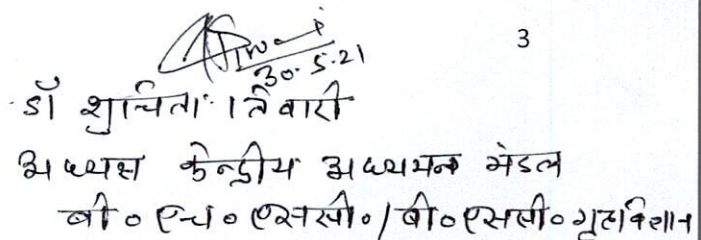 3
30.5.21
डॉ शुचिता तिवारी
अध्यक्ष केन्द्रीय अध्ययन मंडल
बी० एच० एससी० / बी०एससी० गृहविज्ञान